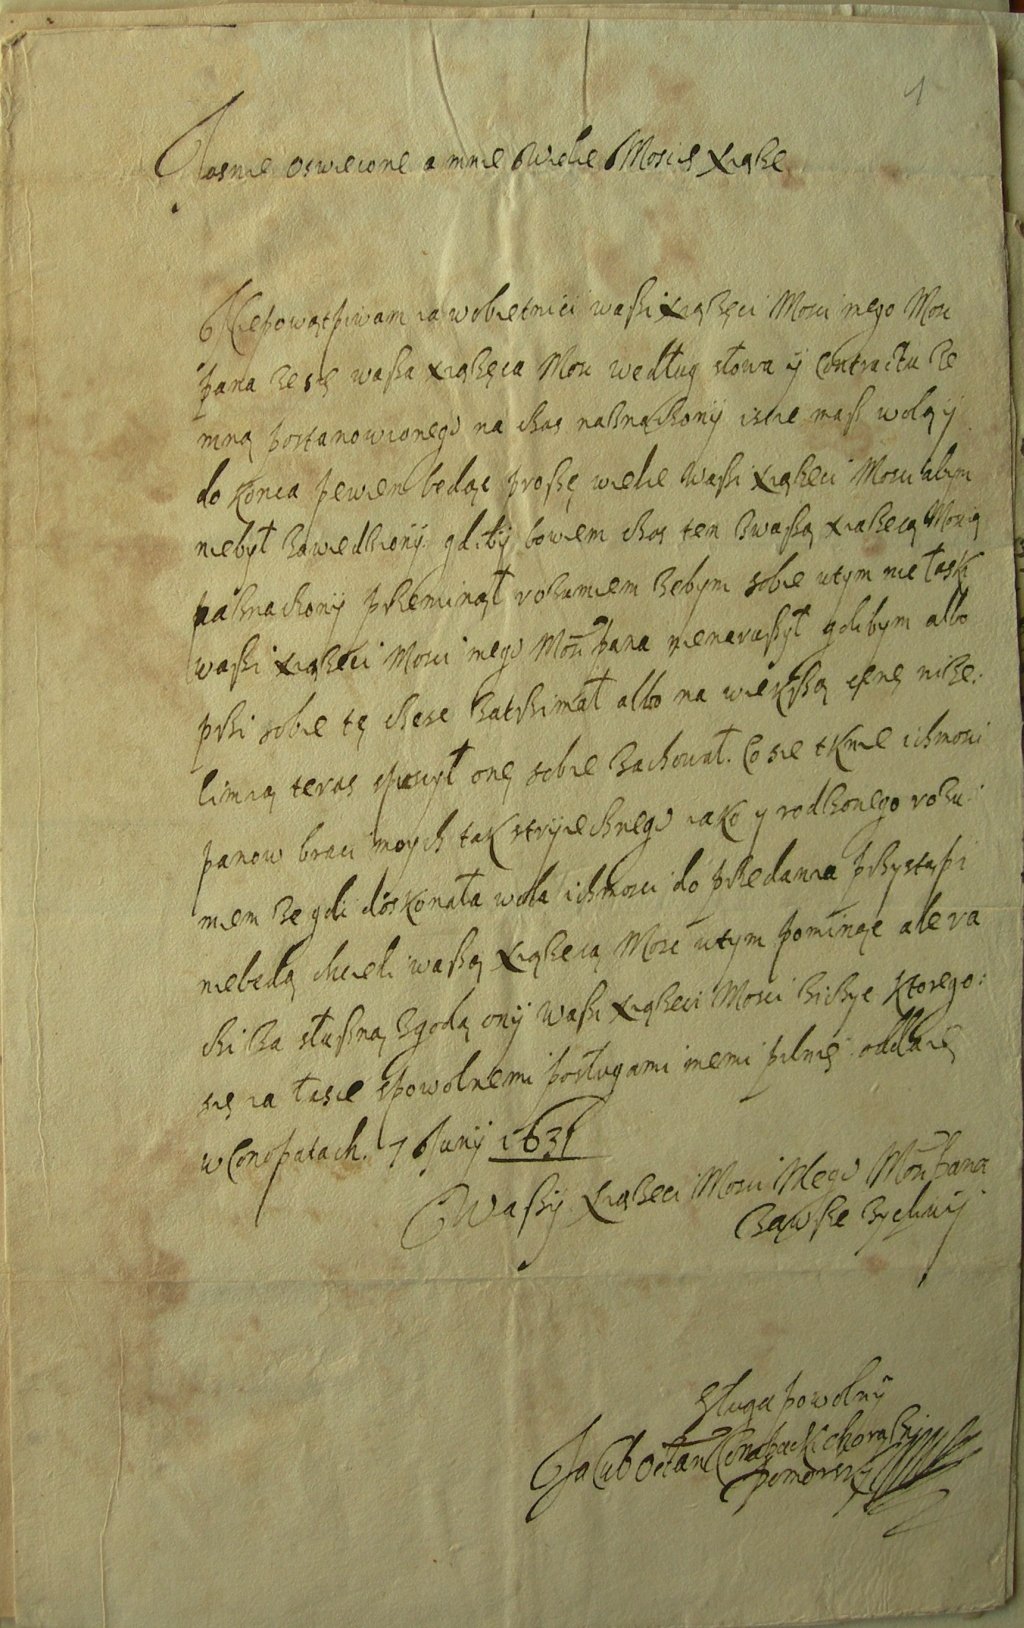 1
Jasnie oswiecone a mnie Wiele Moscie Xiąże
Niepowątpiwam ia wobietnici waszi Xiążęci Mosci mego Mosci
pana ze się wasza Xiążęca Mosc według słowa y Contractu ze
mną postanowionego na czas naznaczony iscie masz wolą y
do konca pewien będąc proszę wiele waszi Xiążeci Mosci abim
niebył zawiedziony gdiby bowiem czas ten zwaszą Xiążecą Moscią
naznaczony przeminął rozumiem zebym sobie utym nie łask
waszi Xiążeci Mosci mego Mosci pana nienaruszył gdibym albo
przi sobie tę zatrzimał albo na wiekszą cenę niże
limią teras spuscył onę sobie zachował. Co sie tknie ichmosci
panow braci moych tak stryiecznego iako y rodzonego rozu
miem ze gdi doskonała wola ichmosci do przedania przystąpi
niebędą chcieli waszą Xiążecą Mosc utym pominąc ale ra
czi za słuszną zgodą onÿ waszi Xiążeci Mosci ziczyc ktorego
się ia łasce spowolnemi posługami memi pilnię oddaię
w Conopatach. 7 Juny 1631
Waszÿ Xiążeci Mosci Mego Mosci pana
Zawsze zyclivÿ
Sługa powolnÿ
Jacub Octaui Conapacki chorąszi
pomorski